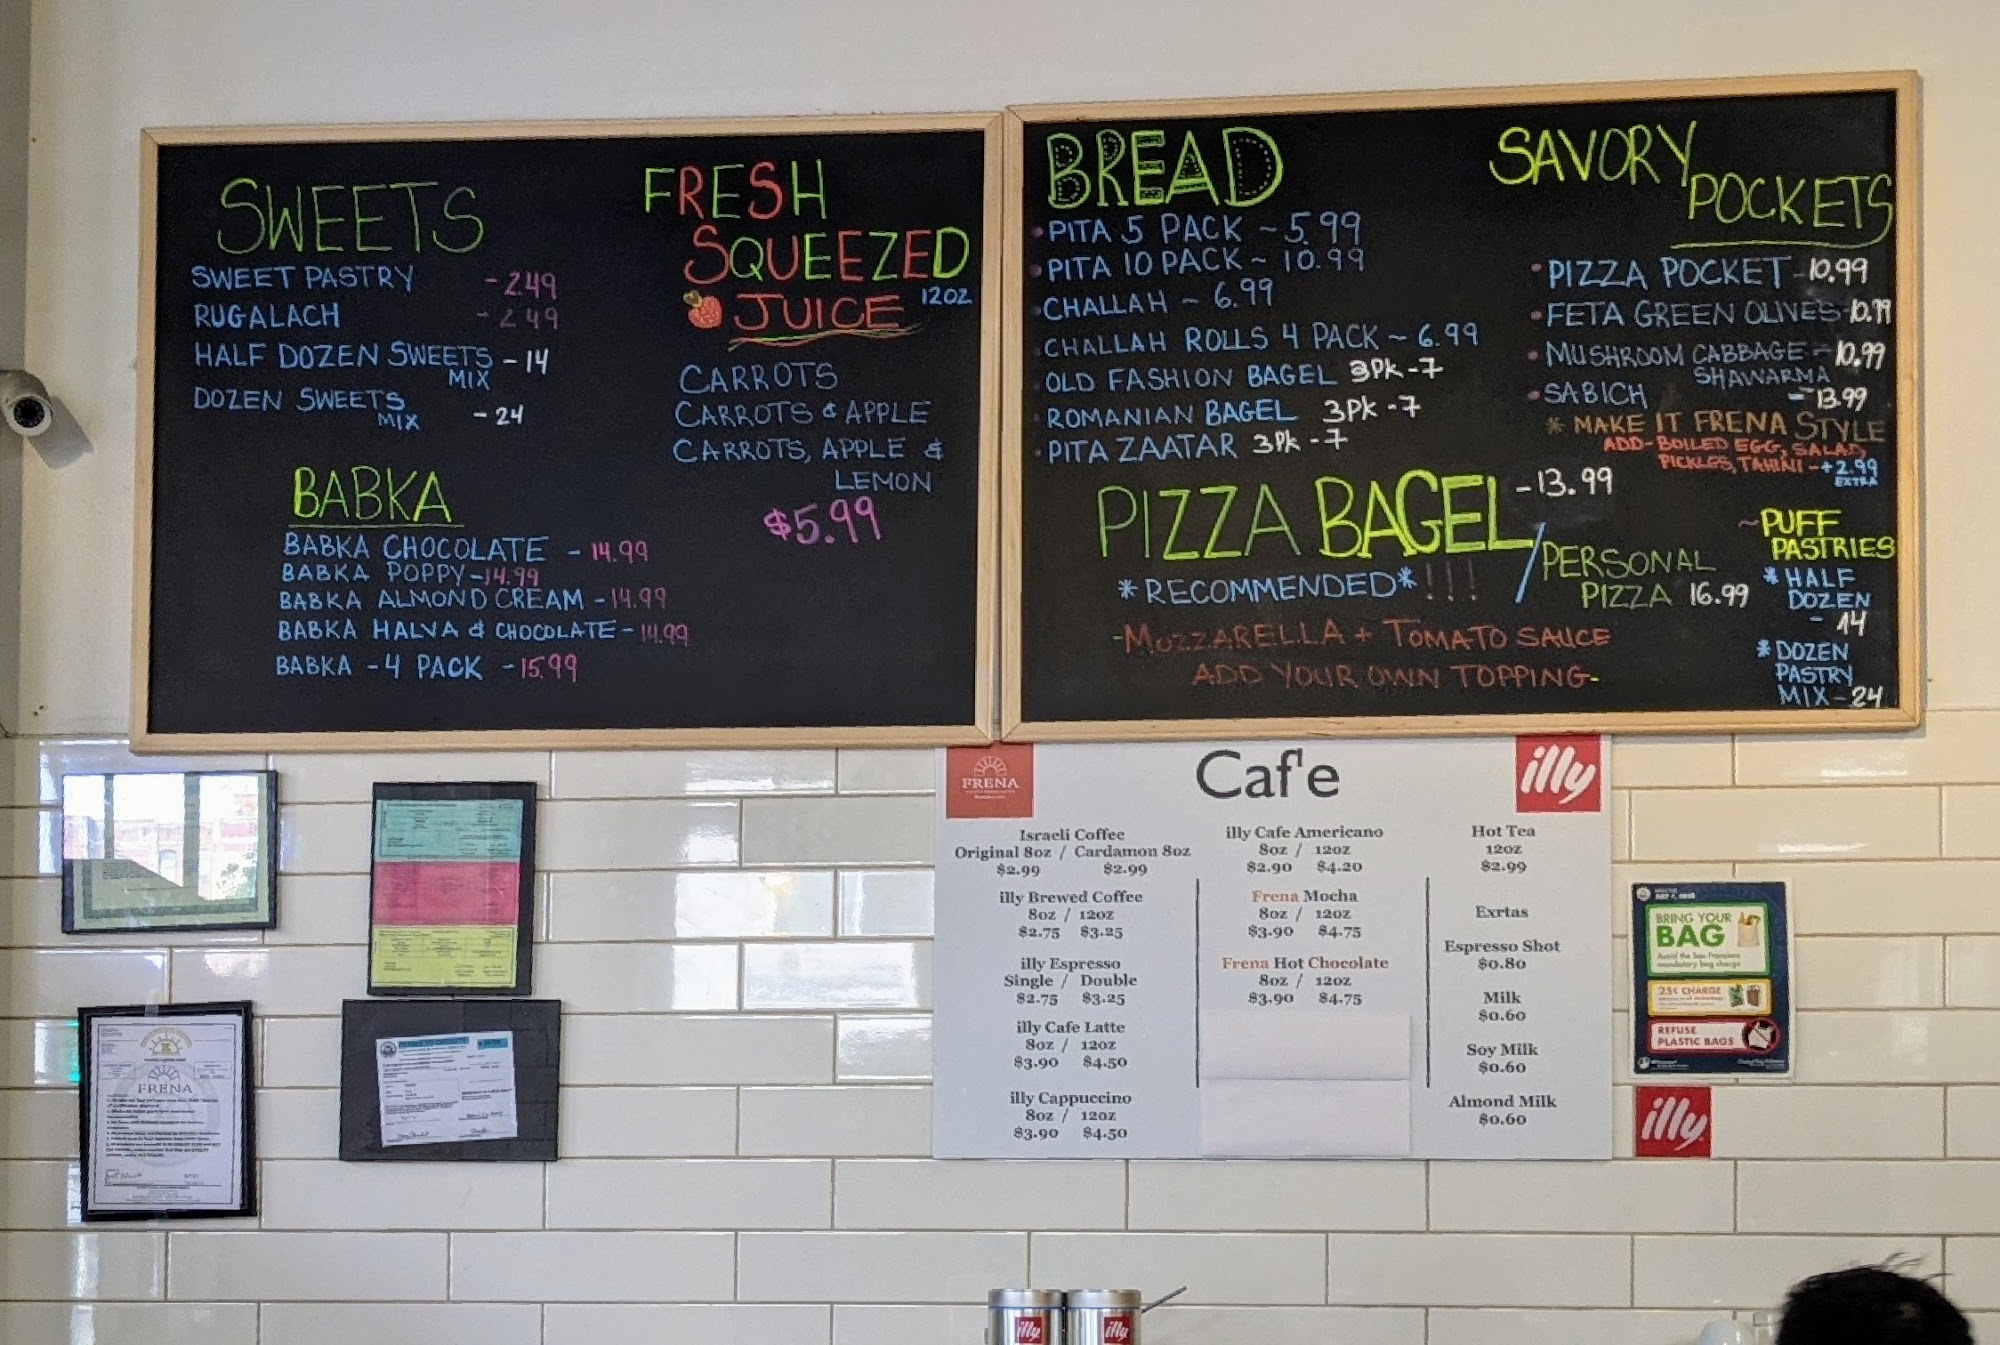 SWEETS
SWEET PASTRY - 2.49
RUGALACH - 2.49
HALF DOZEN SWEETS - 14
MIX
DOZEN SWEETS
MIX - 24
BABKA
BABKA CHOCOLATE - 14.99
BABKA POPPY - 14.99
BABKA ALMOND CREAM - 14.99
BABKA HALVA & CHOCOLATE - 14.99
BABKA - 4 PACK - 15.99
FRESH
SQUEEZED
JUICE 12OZ
CARROTS
CARROTS & APPLE
CARROTS, APPLE &
LEMON
$5.99
BREAD
PITA 5 PACK ~ 5.99
PITA 10 PACK ~ 10.99
CHALLAH ~ 6.99
CHALLAH ROLLS 4 PACK ~ 6.99
OLD FASHION BAGEL 3Pk - 7
ROMANIAN BAGEL 3Pk - 7
PITA ZAATAR 3Pk - 7
SAVORY
POCKETS
PIZZA POCKET - 10.99
FETA GREEN OLIVES - 10.99
MUSHROOM CABBAGE - 10.99
SHAWARMA
SABICH - 13.99
* MAKE IT FRENA STYLE
ADD - BOILED EGG, SALAD,
PICKLES, TAHINI - +2.99
EXTRA
PIZZA BAGEL - 13.99
*RECOMMENDED*!!!
/ PERSONAL
PIZZA 16.99
- MOZZARELLA + TOMATO SAUCE
ADD YOUR OWN TOPPING -
~ PUFF
PASTRIES
* HALF
DOZEN
- 14
* DOZEN
PASTRY
MIX - 24
FRENA
Caf'e
illy
Israeli Coffee
Original 8oz / Cardamon 8oz
$2.99 $2.99
illy Brewed Coffee
8oz / 12oz
$2.75 $3.25
illy Espresso
Single / Double
$2.75 $3.25
illy Cafe Latte
8oz / 12oz
$3.90 $4.50
illy Cappuccino
8oz / 12oz
$3.90 $4.50
illy Cafe Americano
8oz / 12oz
$2.90 $4.20
Frena Mocha
8oz / 12oz
$3.90 $4.75
Frena Hot Chocolate
8oz / 12oz
$3.90 $4.75
Hot Tea
12oz
$2.99
Exrtas
Espresso Shot
$0.80
Milk
$0.60
Soy Milk
$0.60
Almond Milk
$0.60
BRING YOUR
BAG
Avoid the San Francisco
mandatory bag charge
25¢ CHARGE
REFUSE
PLASTIC BAGS
illy
FRENA
illy
illy